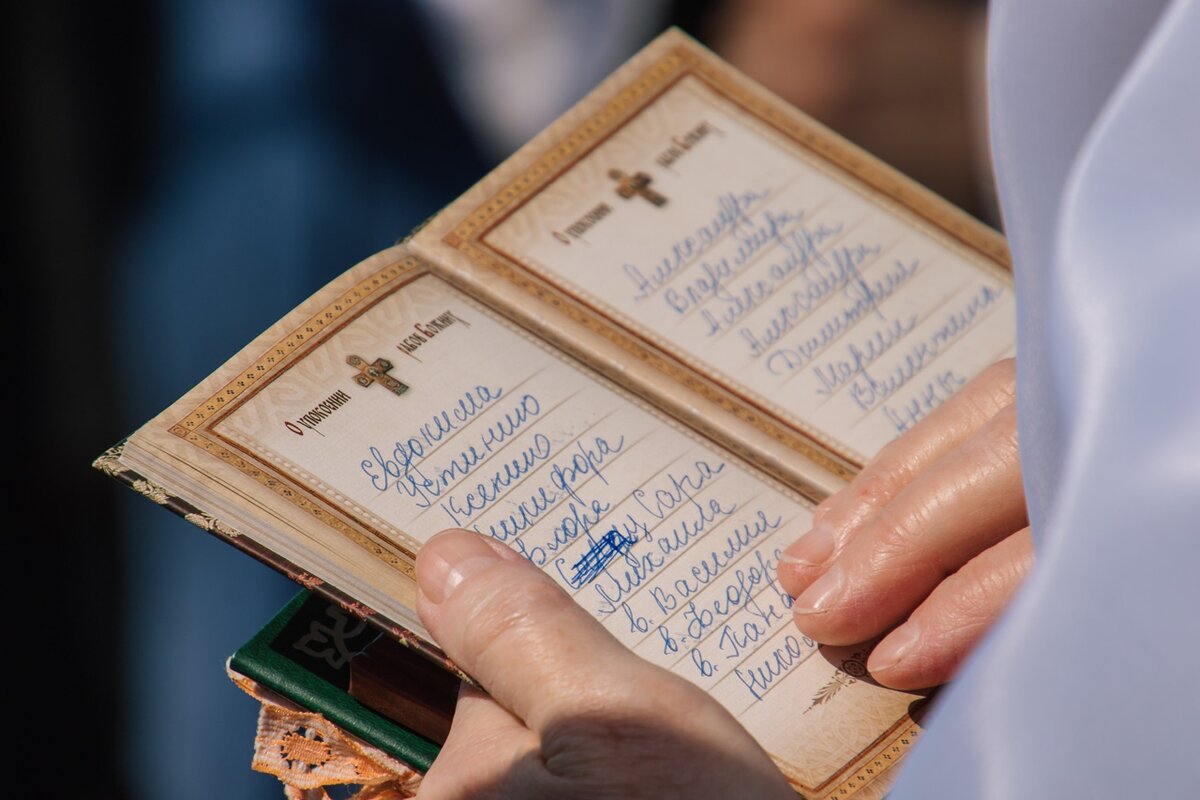 О упокоении рабов Божиих
Евдокима
Устинию
Ксению
Никифора
Флора
Сара
Михаила
в. Василия
в. Феодора
в.
О упокоении рабов Божиих
Александра
Владимира
Александра
Александра
Димитрия
Марии
Валентина
Анны